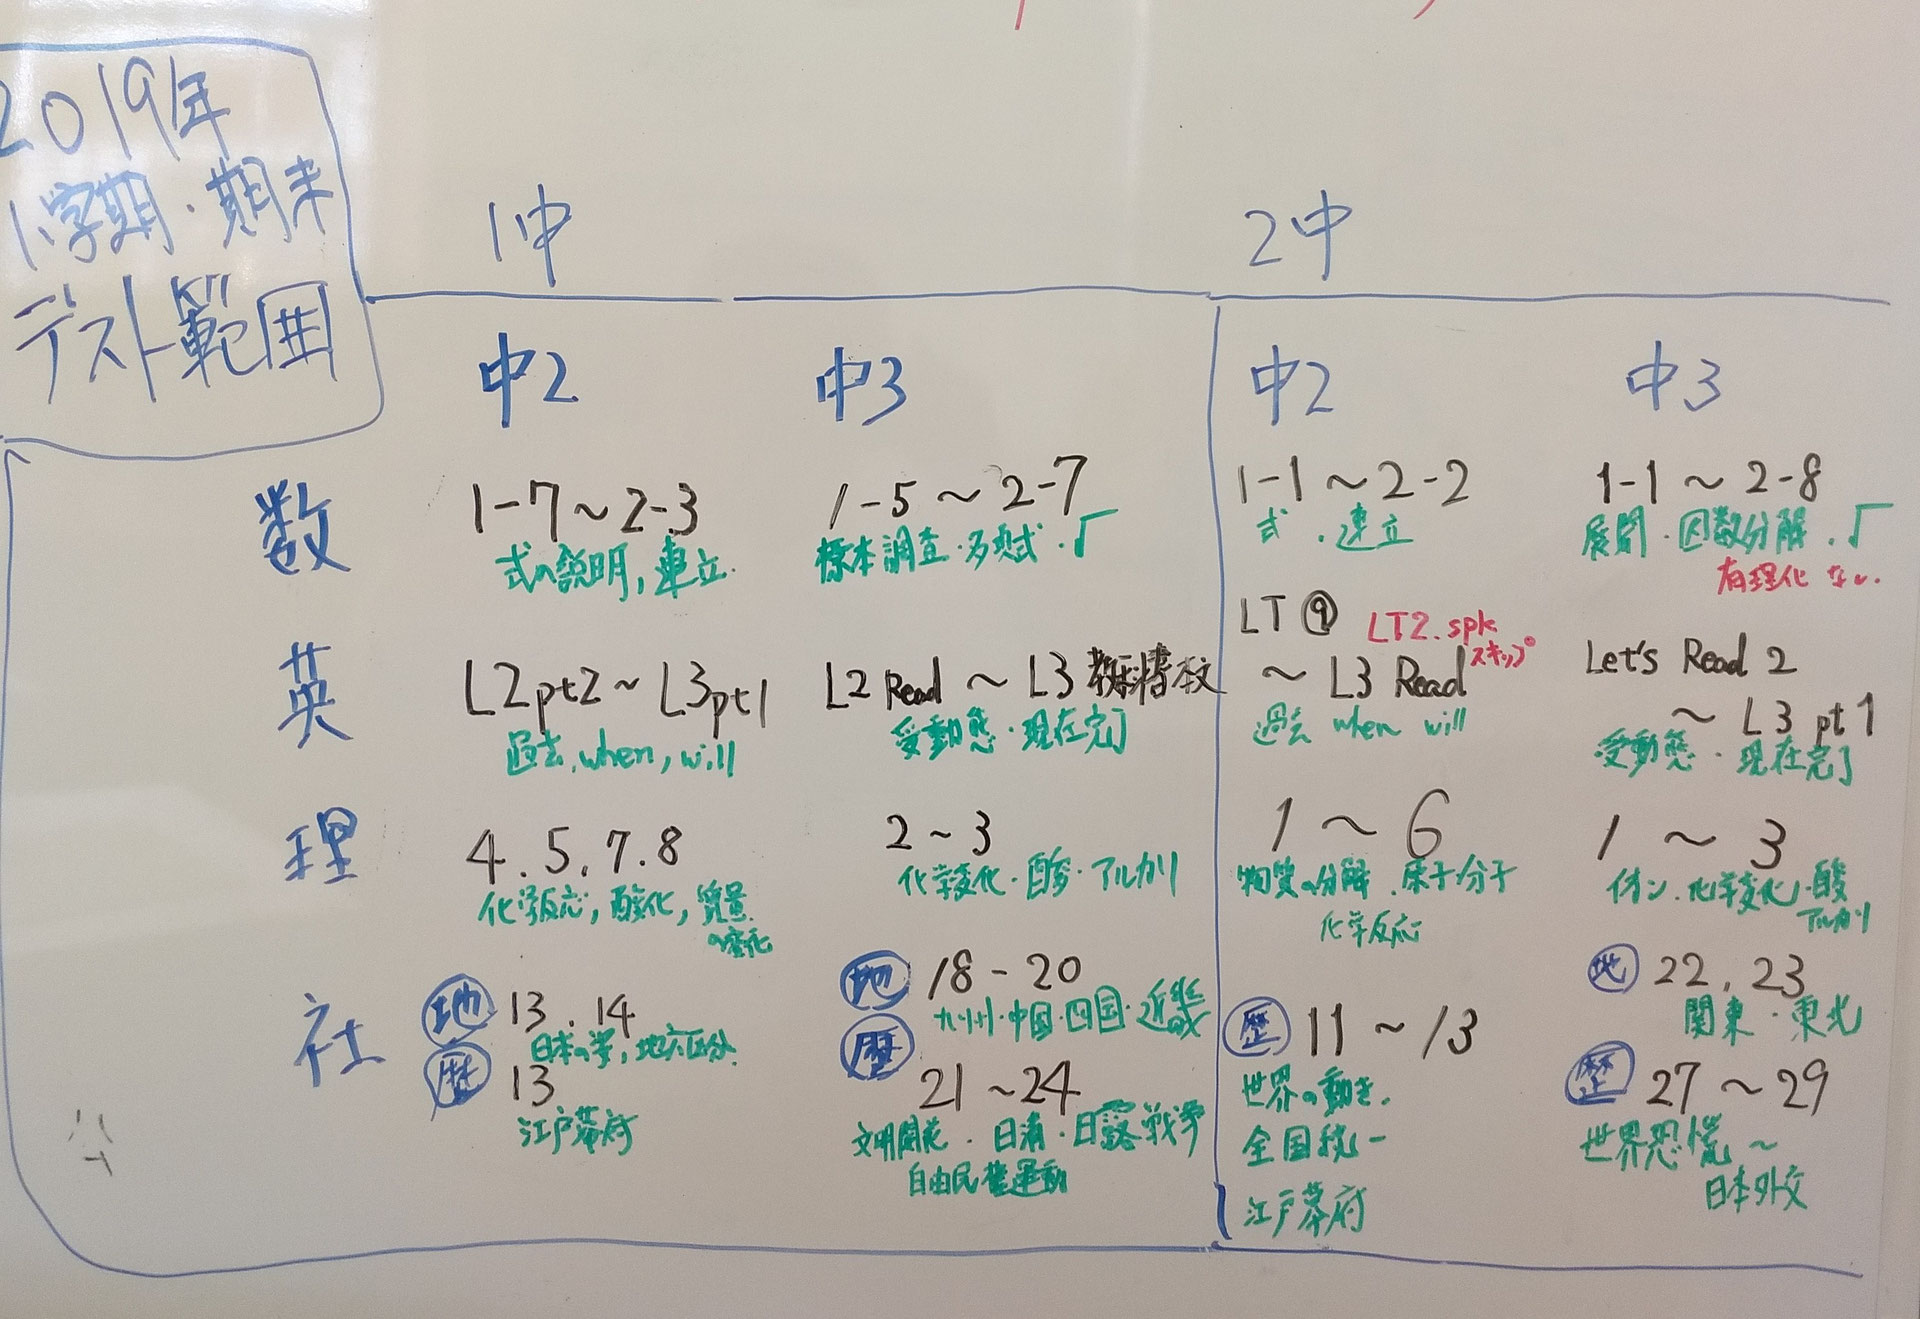 2019年
1学期・期末
テスト範囲
1中
2中
中2
中3
中2
中3
数
1-7～2-3
式の説明, 連立.
1-5～2-7
標本調査・多項式・√
1-1～2-2
式・連立
1-1～2-8
展開・因数分解・√
有理化 ない.
英
L2pt2～L3pt1
過去, when, will
L2 Read～L3 教科書本文
受動態・現在完了
LT⑨ LT2. spk
スキップ
～L3 Read
過去 when will
Let's Read 2
～L3 pt1
受動態・現在完了
理
4.5.7.8
化学反応, 酸化, 質量
の変化
2～3
化学変化・酸・アルカリ
1～6
物質の分解・原子・分子
化学反応
1～3
イオン・化学変化・酸
アルカリ
社
地 13.14
日本の姿, 地方区分.
歴 13
江戸幕府
地 18-20
九州・中国・四国・近畿
歴
21～24
文明開花・日清・日露戦争
自由民権運動
歴 11～13
世界の動き.
全国統一
江戸幕府
地 22.23
関東・東北
歴 27～29
世界恐慌～
日本外交